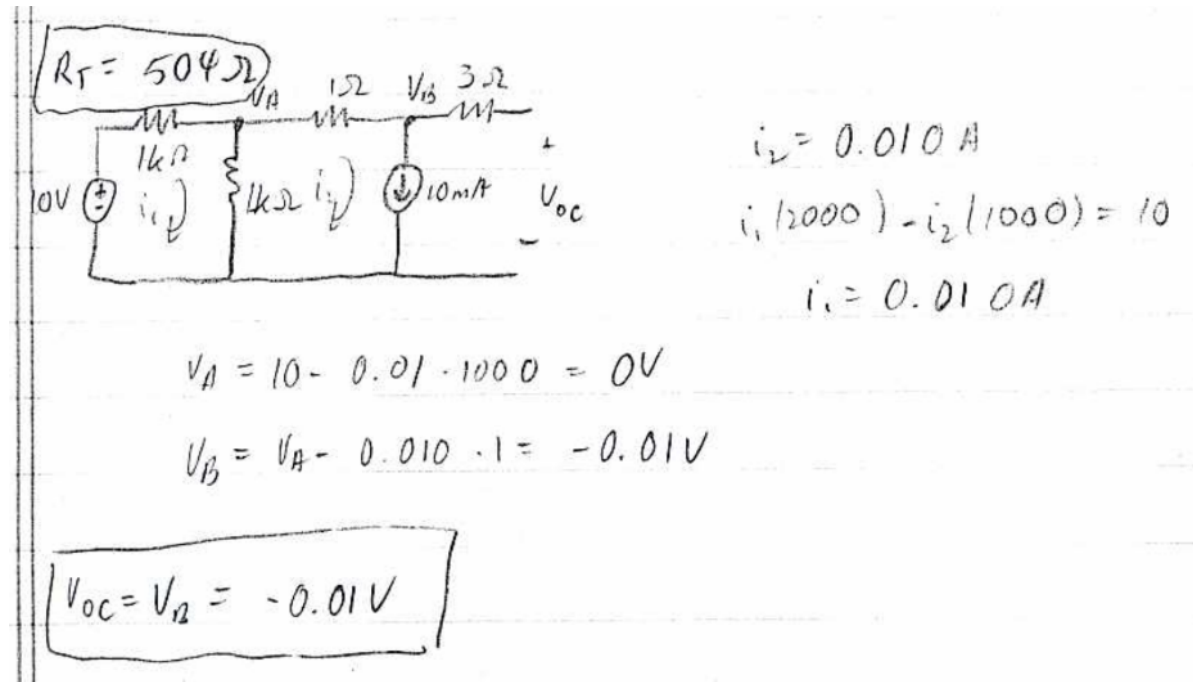 R_T = 504 Ω
V_A 1Ω V_B 3Ω
1kΩ
10V + - i_1 1kΩ i_2 10mA
+
V_oc
-
i_2 = 0.010 A
i_1(2000) - i_2(1000) = 10
i_1 = 0.010A
V_A = 10 - 0.01 · 1000 = 0V
V_B = V_A - 0.010 · 1 = -0.01V
V_oc = V_B = -0.01V